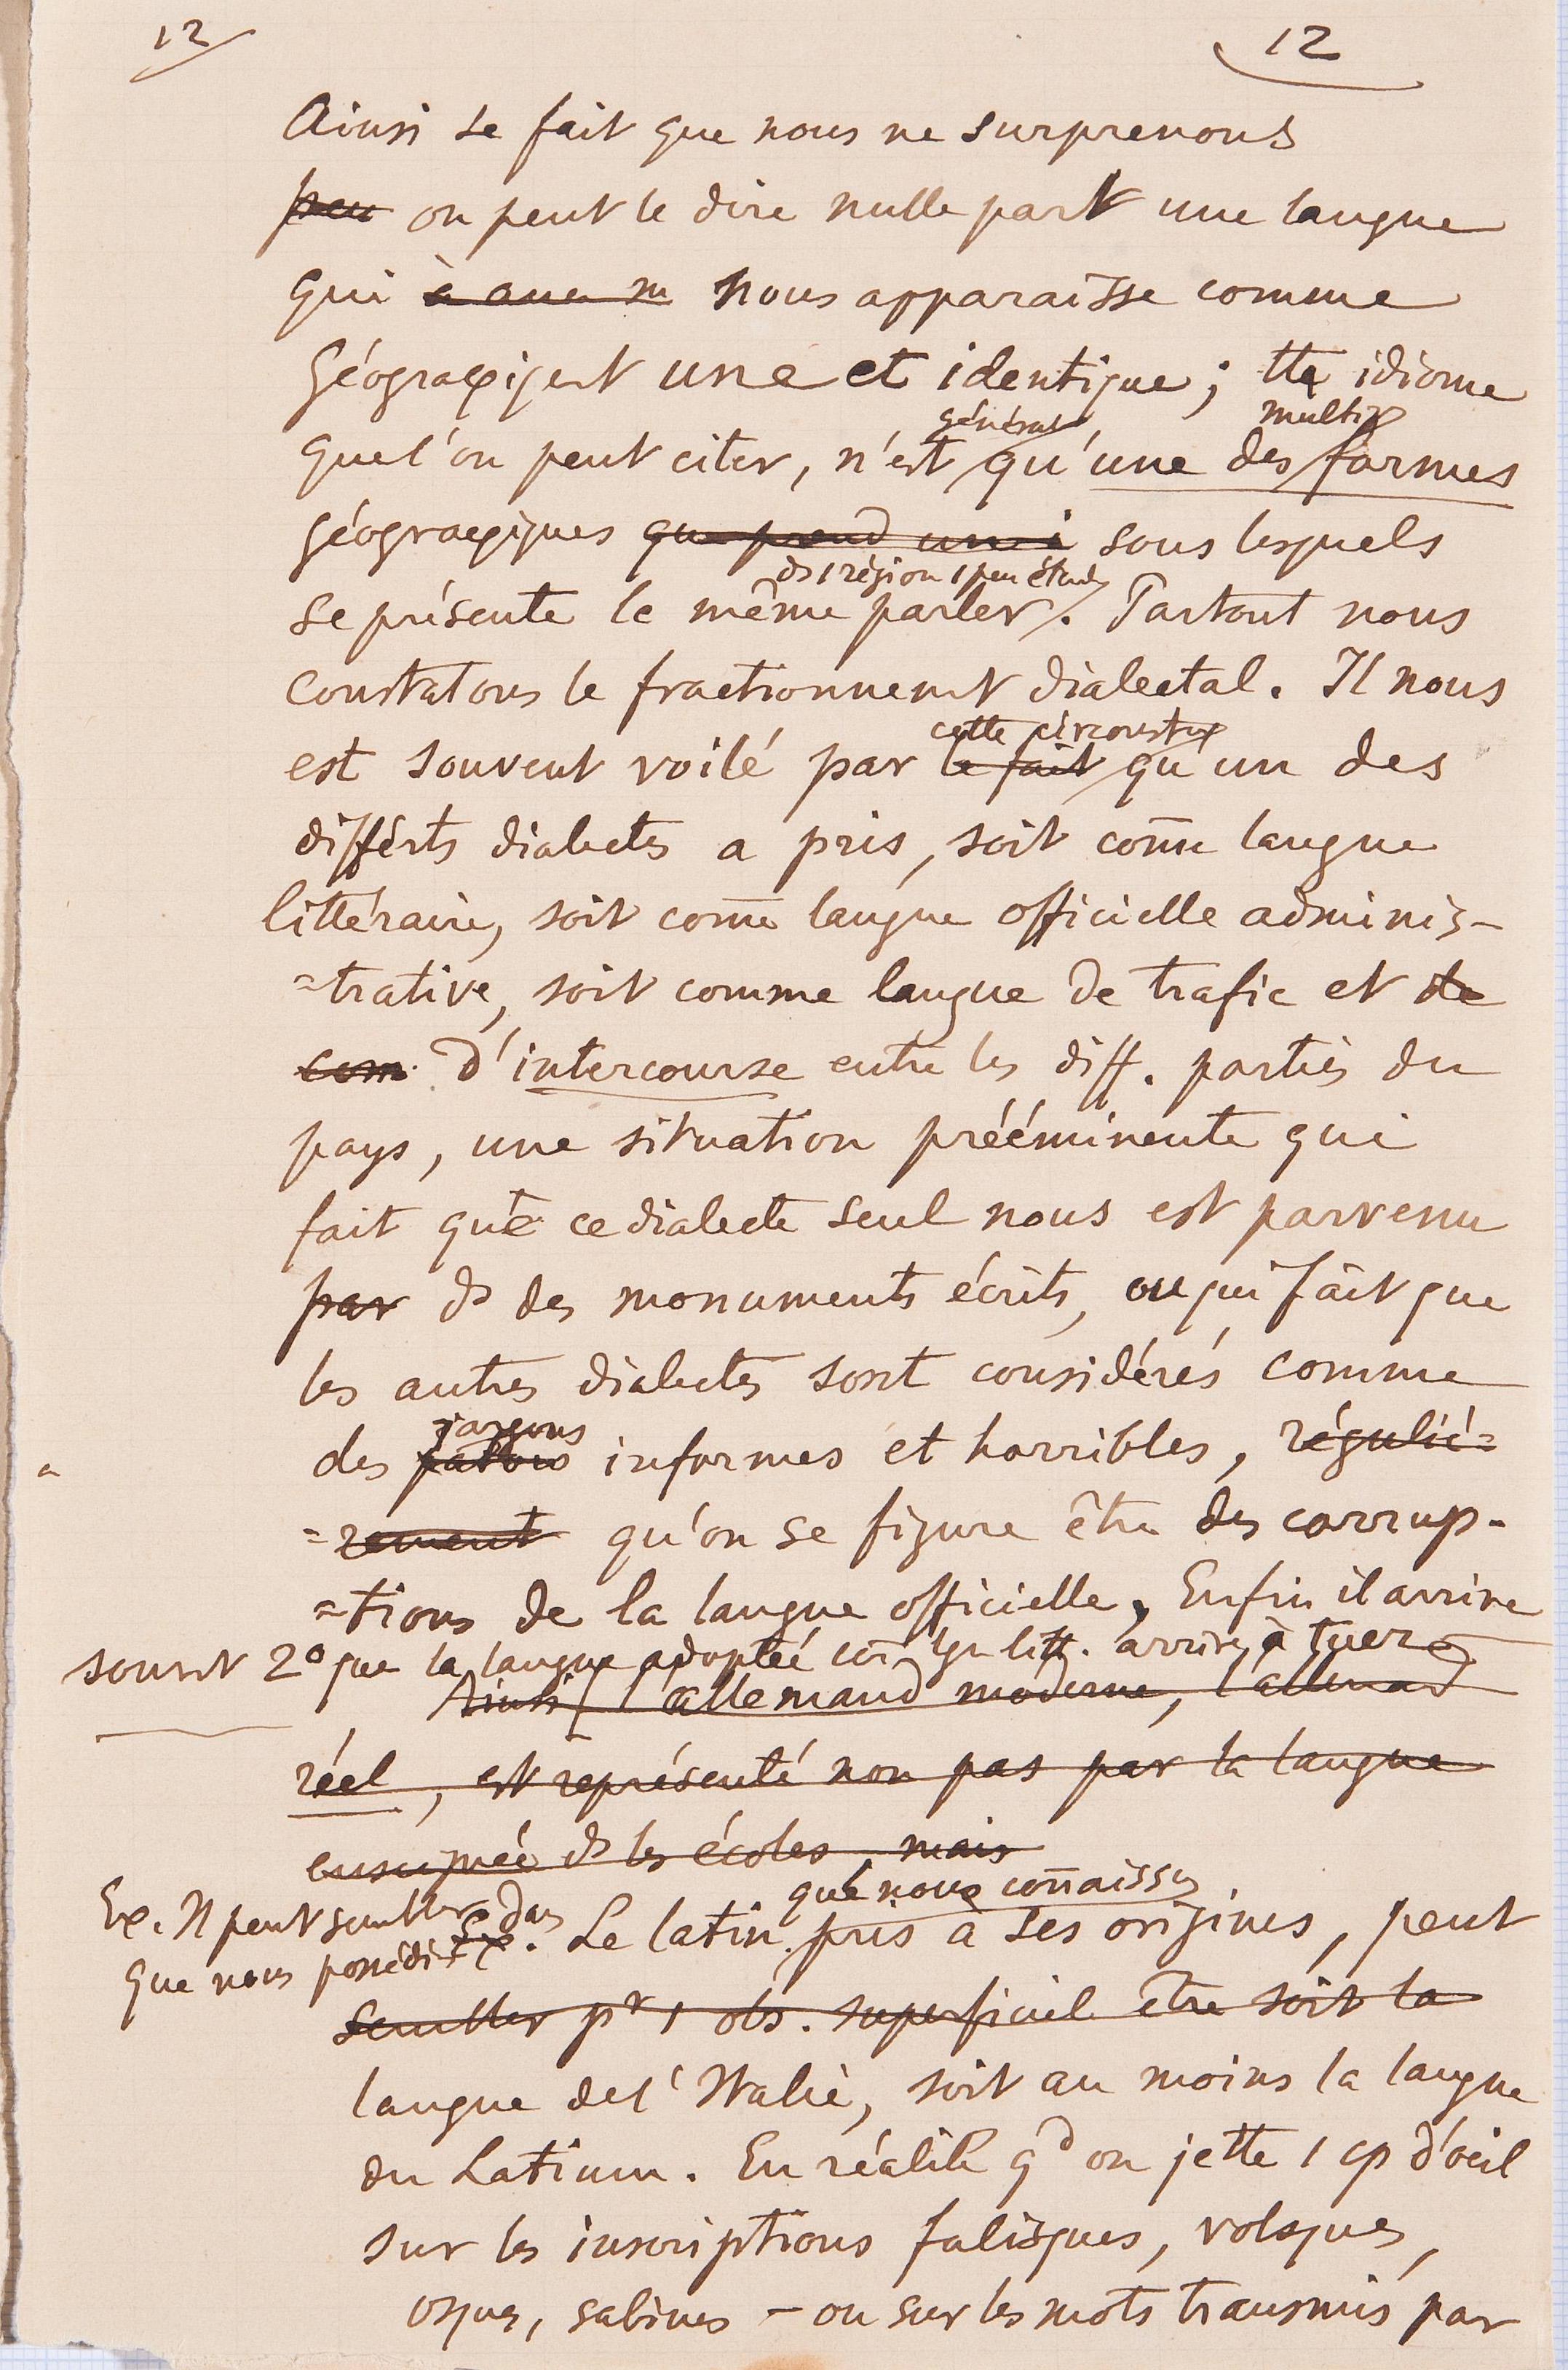 12 12
Ainsi se fait que nous ne surprenons
peu on peut le dire nulle part une langue
qui à nous apparaisse comme
géograφiqent une et identique ; tte idiome
général multiφ
que l'on peut citer, n'est qu'une des formes
géograφiques que prend sous lesquels
ds 1 région 1 peu étendue
se présente le même parler. Partout nous
constatons le fractionnement dialectal. Il nous
cette circonstce
est souvent voilé par le fait qu'un des
différts dialectes a pris, soit com̄e langue
littéraire, soit com̄e langue officielle adminis-
=trative, soit comme langue de trafic et de
com d'intercourse entre les diff. parties du
pays, une situation prééminente qui
fait que ce dialecte seul nous est parvenu
par ds des monuments écrits, ou qui fait que
les autres dialectes sont considérés comme
jargons
des patois informes et horribles, réguliè=
=rement qu'on se figure être des corrup-
=tions de la langue officielle. Enfin il arrive
souvt 2° que la langue adoptée com̄ lgu litt. arrive à tuer
Ainsi l'allemand moderne, l'allemand
réel, est représenté non pas par la langue
enseignée ds les écoles, mais
que nous con̄aissons
Ex. Il peut sembler dans Ex. Le latin pris à ses origines, peut
que nous
sembler pr 1 obs. superficiel être soit la
langue de l'Italie, soit au moins la langue
du Latium. En réalité qd on jette 1 cp d'œil
sur les inscriptions falisques, volsques,
osques, sabines – ou sur les mots transmis par